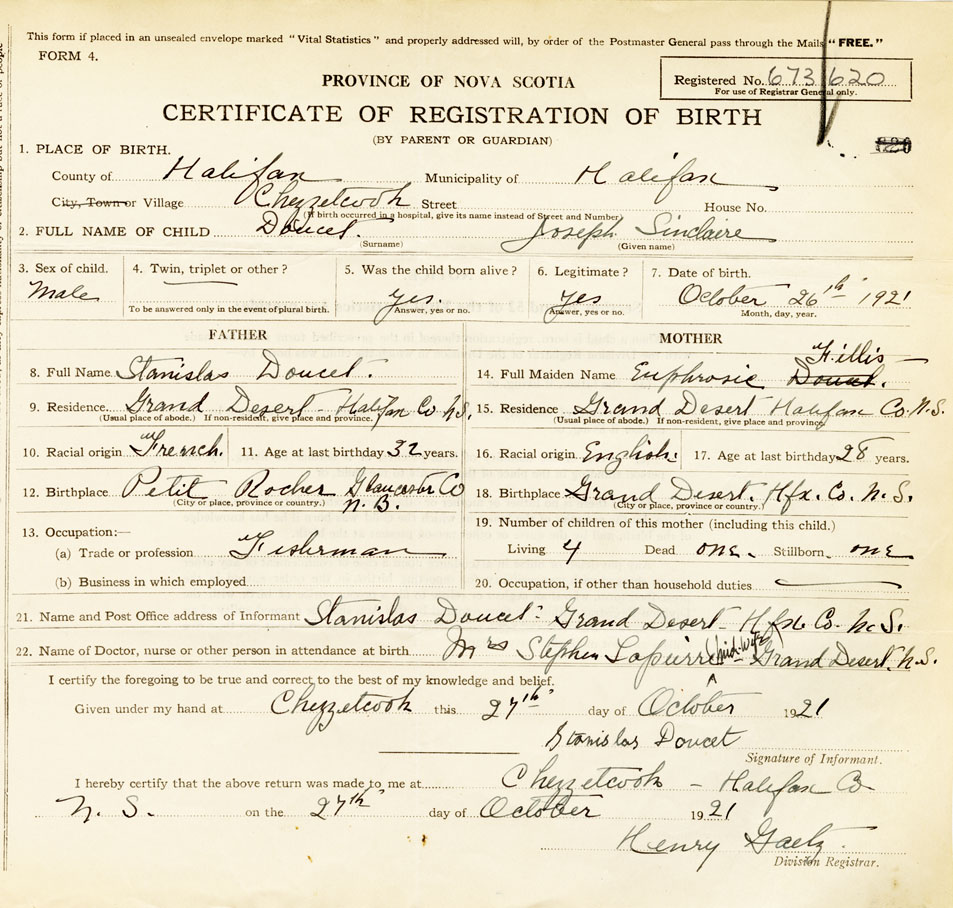 This form if placed in an unsealed envelope marked "Vital Statistics" and properly addressed will, by order of the Postmaster General pass through the Mails "FREE."
FORM 4.
Registered No. 673 620
For use of Registrar General only.
PROVINCE OF NOVA SCOTIA
CERTIFICATE OF REGISTRATION OF BIRTH
(BY PARENT OR GUARDIAN)
1. PLACE OF BIRTH.
County of Halifax Municipality of Halifax
City, Town or Village Chezzetcook Street House No.
(If birth occurred in a hospital, give its name instead of Street and Number)
2. FULL NAME OF CHILD Doucet. Joseph Sinclaire
(Surname) (Given name)
3. Sex of child. 4. Twin, triplet or other? 5. Was the child born alive? 6. Legitimate? 7. Date of birth.
Male yes. yes October 26th 1921
To be answered only in the event of plural birth. Answer, yes or no. Answer, yes or no. Month, day, year.
FATHER MOTHER
8. Full Name Stanislas Doucet. 14. Full Maiden Name Euphrosie Doucet. "Fillis
9. Residence Grand Desert - Halifax Co N.S. 15. Residence Grand Desert Halifax Co. N.S.
(Usual place of abode.) If non-resident, give place and province. (Usual place of abode.) If non-resident, give place and province.
10. Racial origin French. 11. Age at last birthday 32 years. 16. Racial origin English. 17. Age at last birthday 28 years.
12. Birthplace Petit Rocher Gloucester Co N.B. 18. Birthplace Grand Desert. Hfx. Co. N.S.
(City or place, province or country.) (City or place, province or country.)
13. Occupation:— 19. Number of children of this mother (including this child.)
(a) Trade or profession Fisherman Living 4 Dead one. Stillborn one
(b) Business in which employed 20. Occupation, if other than household duties
21. Name and Post Office address of Informant Stanislas Doucet - Grand Desert Hfx. Co. N.S.
22. Name of Doctor, nurse or other person in attendance at birth Mrs Stephen Lapierre (mid-wife) Grand Desert. N.S.
I certify the foregoing to be true and correct to the best of my knowledge and belief.
Given under my hand at Chezzetcook this 27th day of October 1921
Stanislas Doucet
Signature of Informant.
I hereby certify that the above return was made to me at Chezzetcook - Halifax Co
N.S. on the 27th day of October 1921
Henry Gaetz
Division Registrar.